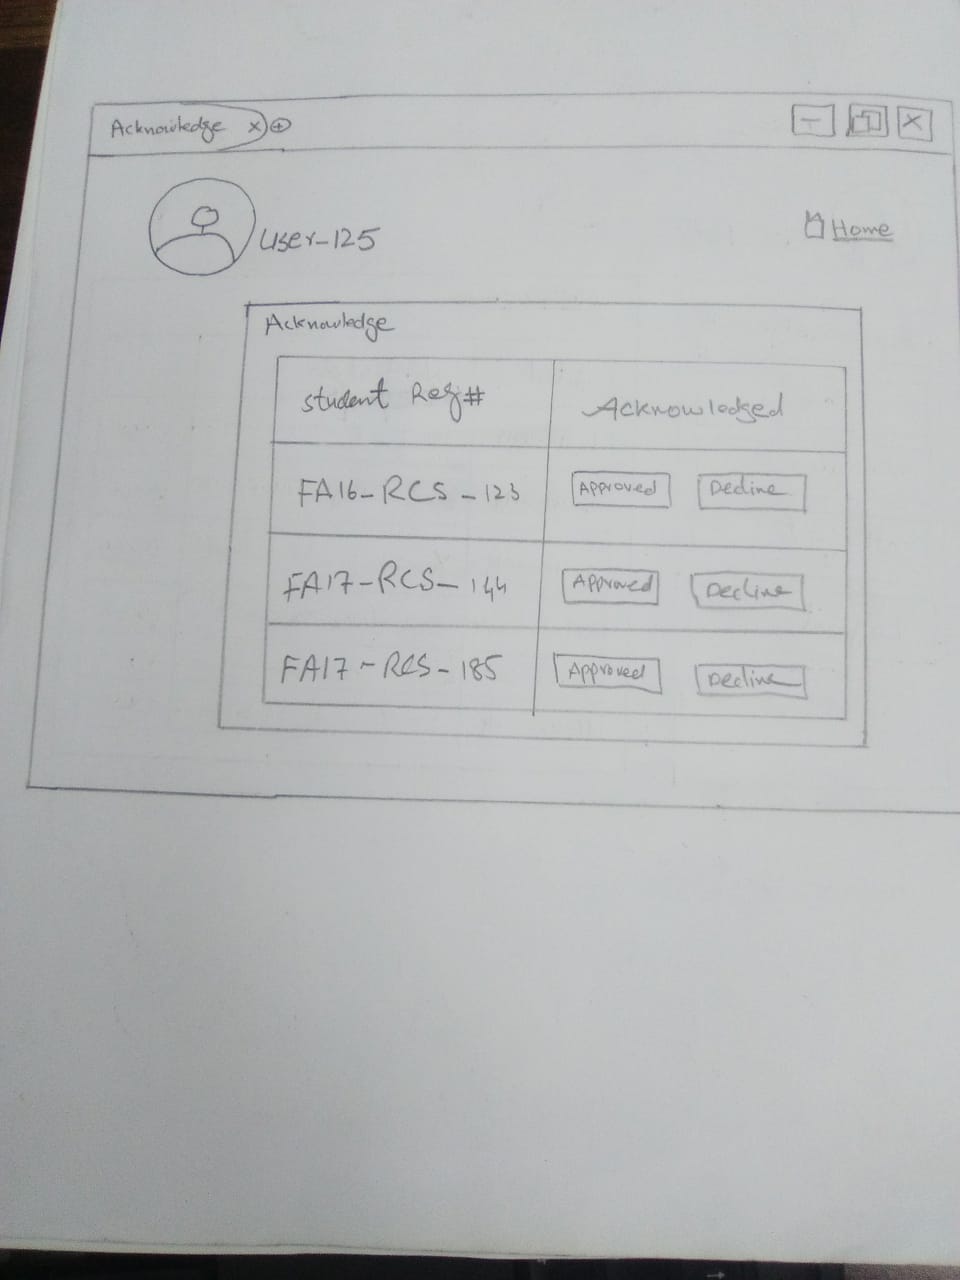 Acknowledge x
User-125
Home
Acknowledge
Student Reg# Acknowledged
FA16-RCS-123 Approved Decline
FA17-RCS-144 Approved Decline
FA17-RCS-185 Approved Decline